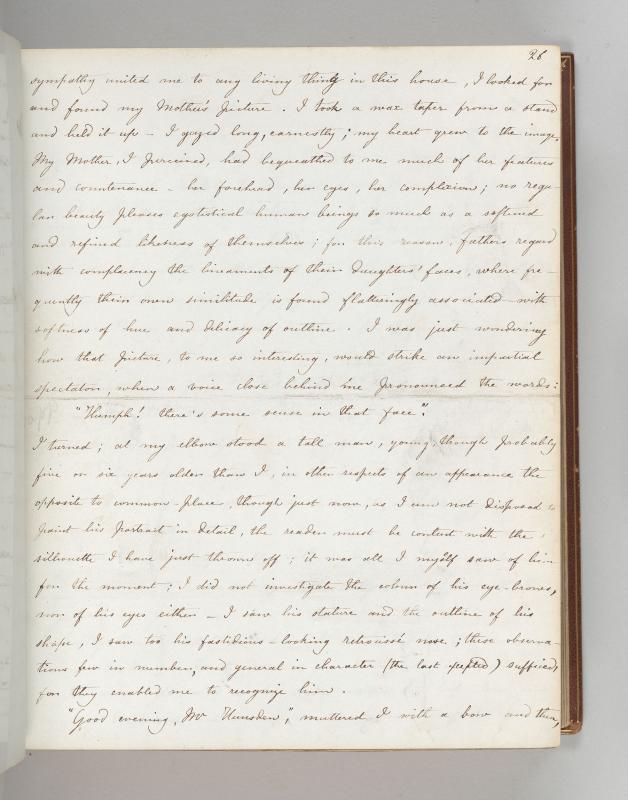 26
sympathy united me to any living thing in this house, I looked for
and found my Mother's picture. I took a wax taper from a stand
and held it up - I gazed long, earnestly; my heart grew to the image.
My Mother, I perceived, had bequeathed to me much of her features
and countenance - her forehead, her eyes, her complexion; no regu-
lar beauty pleases egotistical human beings so much as a softened
and refined likeness of themselves; for this reason, fathers regard
with complacency the lineaments of their daughters' faces, where fre-
quently their own similitude is found flatteringly associated with
softness of hue and delicacy of outline. I was just wondering
how that picture, to me so interesting, would strike an impartial
spectator, when a voice close behind me pronounced the words:
"Humph! there's some sense in that face".
I turned; at my elbow stood a tall man, young, though probably
five or six years older than I, in other respects of an appearance the
opposite to common-place, though just now, as I am not disposed to
paint his portrait in detail, the reader must be content with the
silhouette I have just thrown off; it was all I myself saw of him
for the moment; I did not investigate the colour of his eye-brows,
nor of his eyes either - I saw his stature and the outline of his
shape, I saw too his fastidious-looking retroussé nose; these observa-
tions few in number, and general in character (the last excepted) sufficed,
for they enabled me to recognize him.
"Good evening, Mr Hunsden", muttered I with a bow and then,